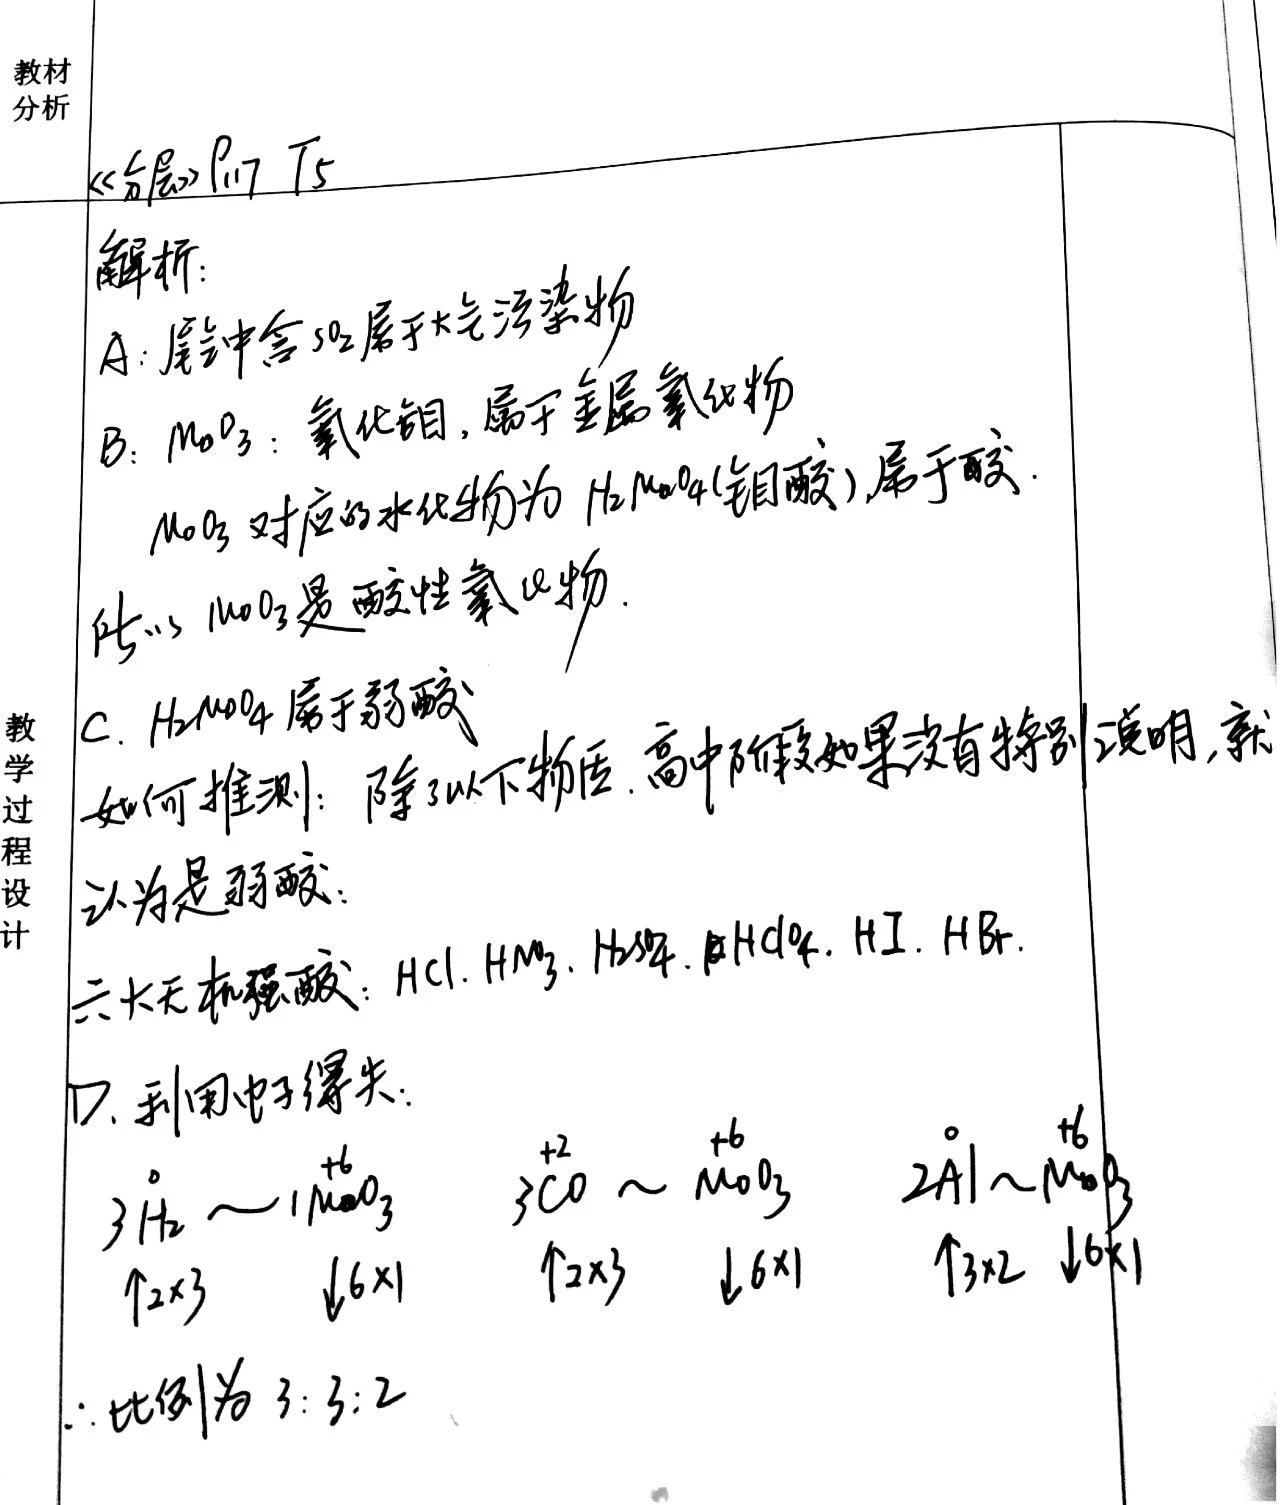 教材
分析
《分层》P117 T5
解析:
A: 尾气中含SO2属于大气污染物
B: MoO3: 氧化钼, 属于金属氧化物
MoO3对应的水化物为H2MoO4(钼酸), 属于酸.
所以MoO3是酸性氧化物.
C. H2MoO4属于弱酸
如何推测: 除了以下物质. 高中阶段如果没有特别说明, 就
认为是弱酸:
六大无机强酸: HCl. HNO3. H2SO4. HClO4. HI. HBr.
D. 利用电子得失:
0 +6 +2 +6 0 +6
3H2 ~ 1MoO3 3CO ~ MoO3 2Al ~ MoO3
↑2×3 ↓6×1 ↑2×3 ↓6×1 ↑3×2 ↓6×1
∴比例为 3:3:2
教
学
过
程
设
计